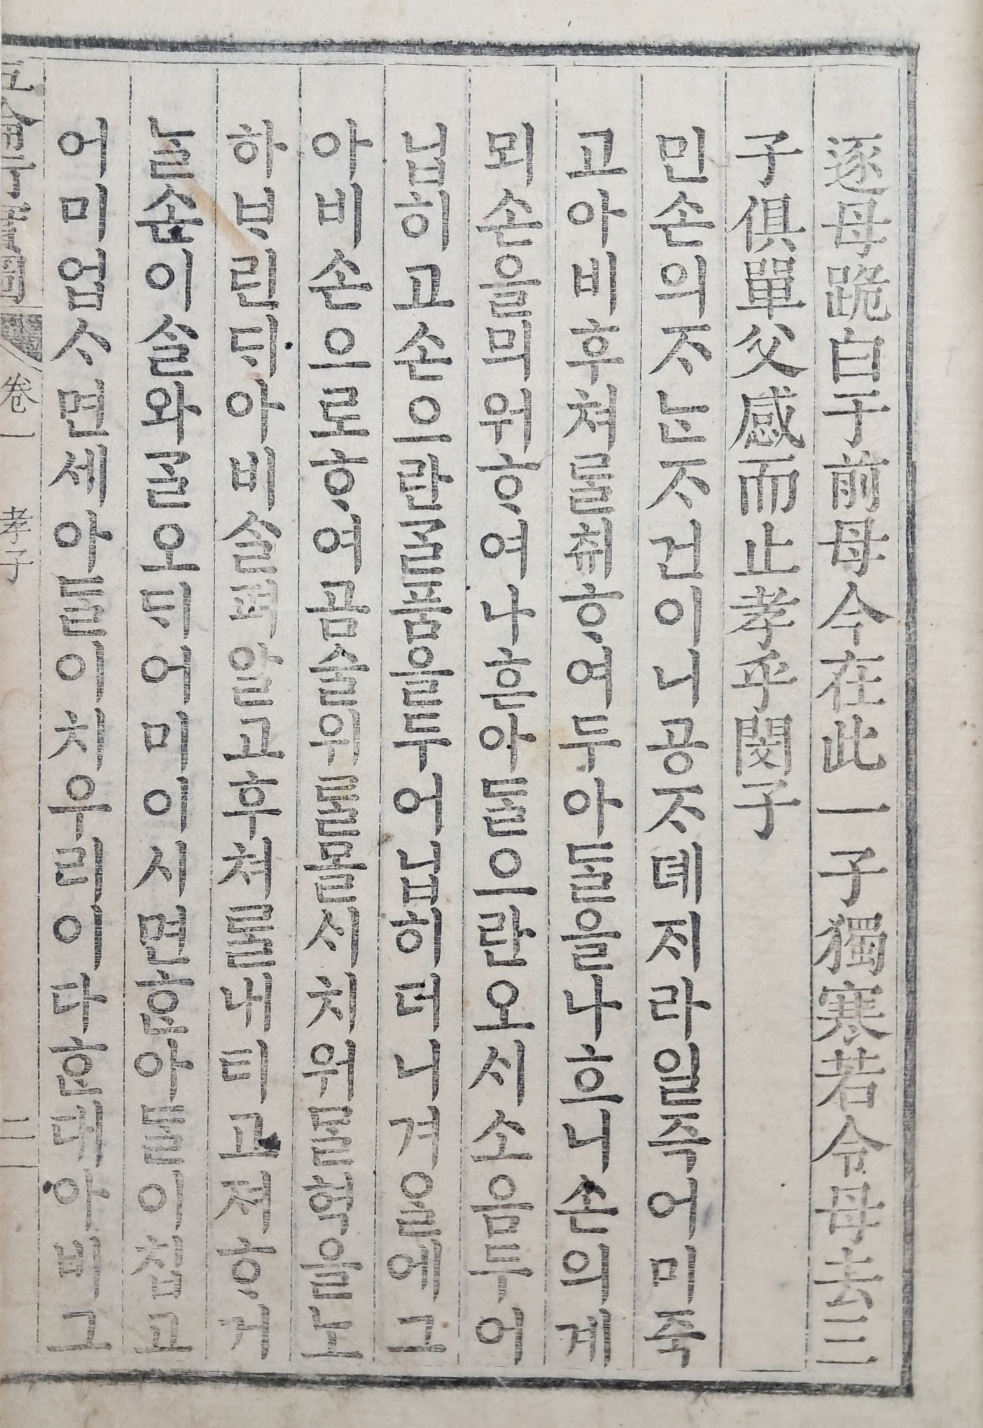 逐母跪白于前母今在此一子獨寒若令母去三
子俱單父感而止孝乎閔子
민손의ᄌᆞᄂᆞᆫᄌᆞ건이니공ᄌᆞ뎨지라일즉어미죽
고아비후쳐ᄅᆞᆯ취ᄒᆞ여두아ᄃᆞᆯ을나흐니손의계
뫼손을믜워ᄒᆞ여나흔아ᄃᆞᆯ으란오시소음두어
닙히고손으란ᄀᆞᆯ품을두어닙히더니겨을에그
아비손으로ᄒᆞ여곰술위ᄅᆞᆯ몰ᄉᆡ치위ᄅᆞᆯ혁을노
하ᄇᆞ린ᄃᆡ아비ᄉᆞᆯ펴알고후쳐ᄅᆞᆯ내티고져ᄒᆞ거
ᄂᆞᆯ손이ᄉᆞᆯ와ᄀᆞᆯ오ᄃᆡ어미이시면ᄒᆞᆫ아ᄃᆞᆯ이칩고
어미업ᄉᆞ면세아ᄃᆞᆯ이치우리이다ᄒᆞᆫ대아비그
五倫行實圖 卷一 孝子 二